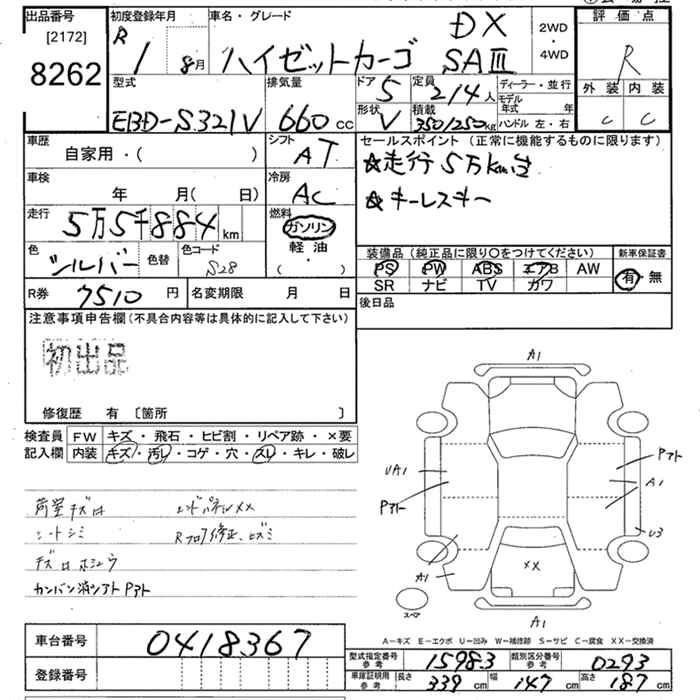 出品番号
[2172]
8262
初度登録年月
R
1
8月
車名・グレード
ハイゼットカーゴ
DX
SAⅢ
2WD
・
4WD
評価点
R
外装 内装
C C
型式
EBD-S321V
排気量
660cc
ドア
5
定員
2/4人
形状
V
積載
350/250kg
ディーラー・並行
モデル年式 年
ハンドル 左・右
車歴
自家用・( )
シフト
AT
セールスポイント(正常に機能するものに限ります)
☆走行5万km台
☆キーレスキー
車検
年 月( 日)
冷房
AC
走行
5万5千884km
燃料
ガソリン
軽油
( ・ )
色
シルバー
色替
色コード
S28
装備品(純正品に限り○をつけてください)
PS PW ABS エアB AW
SR ナビ TV カワ
新車保証書
有・無
R券 7510円
名変期限 月 日
後日品
注意事項申告欄(不具合内容等は具体的に記入して下さい)
初出品
修復歴 有〔箇所 〕
検査員
記入欄
FW キズ・飛石・ヒビ割・リペア跡・×要
内装 キズ・汚レ・コゲ・穴・スレ・キレ・破レ
荷室キズ凹
エンドパネルXX
シートシミ
Rフロア修正、ヒズミ
キズ凹ホシュウ
カンバン消シアト Pアト
A1
UA1
Pアト
Pアト
A1
U3
A1
XX
スペア
A1
A-キズ E-エクボ U-凹み W-補修跡 S-サビ C-腐食 XX-交換済
車台番号
0418367
登録番号
型式指定番号
参考
15983
類別区分番号
参考
0293
車庫証明用
参考
長さ 339cm 幅 147cm 高さ 187cm